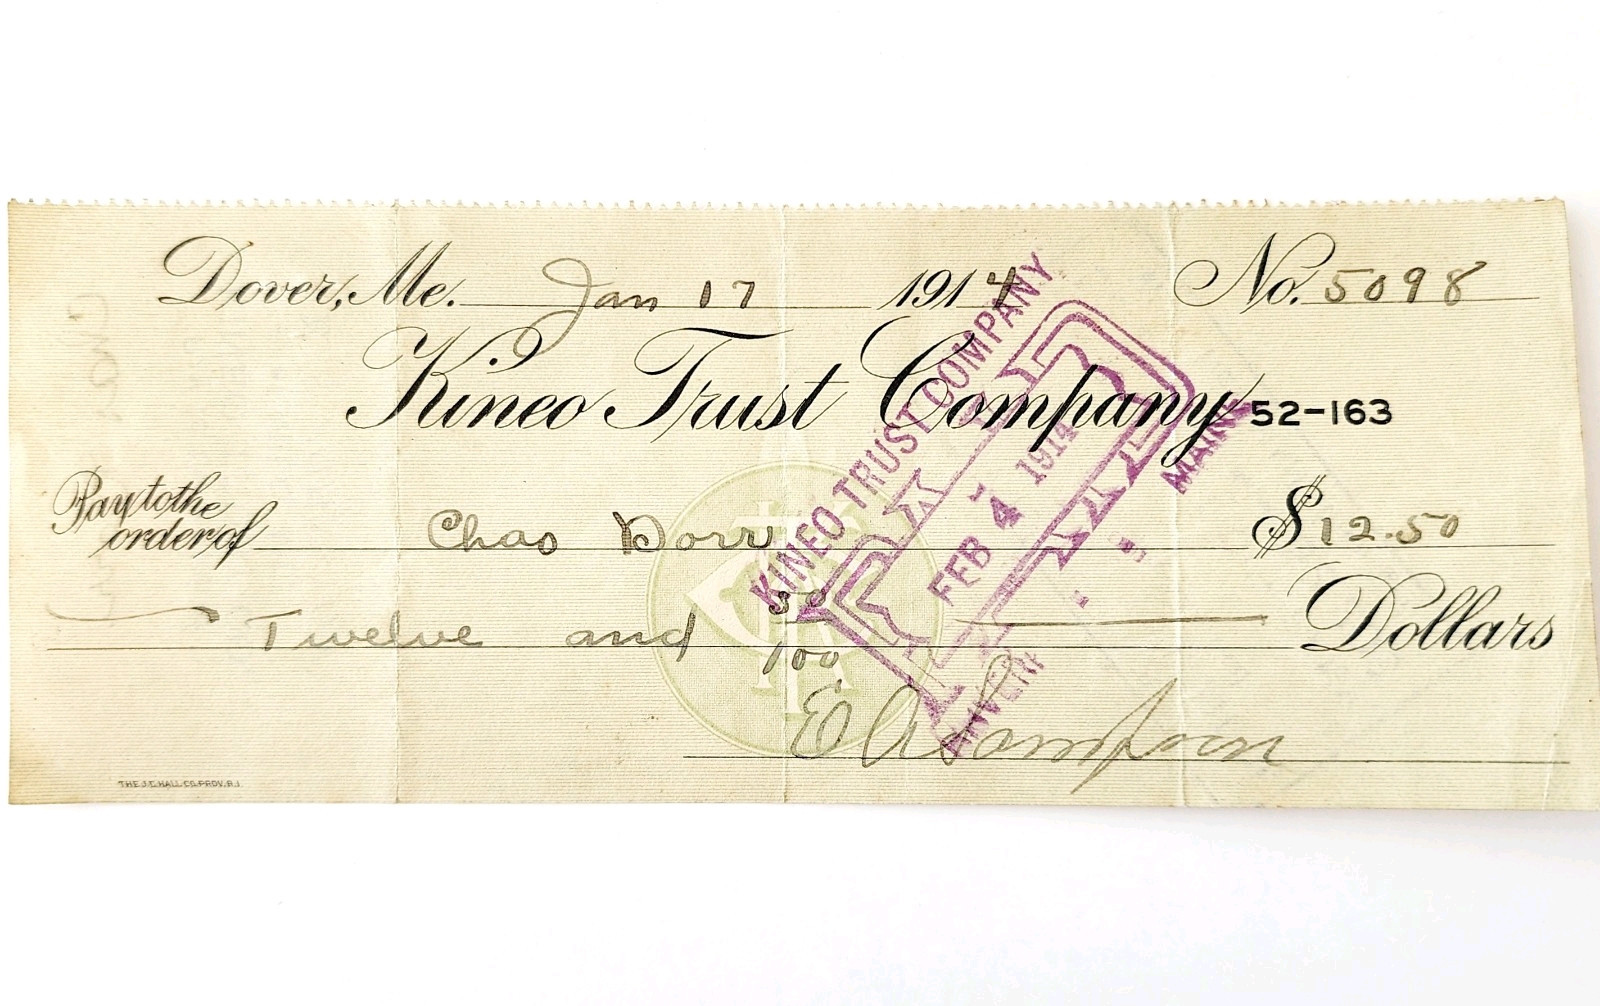 Dover, Me. Jan 17 1914 No. 5098
Kineo Trust Company 52-163
Pay to the
order of Chas Dorr $12.50
Twelve and 50/100 Dollars
E A Sampson
THE J.C. HALL CO. PROV. R.I.
KINEO TRUST COMPANY
PAID
FEB 4 1914
MAINE